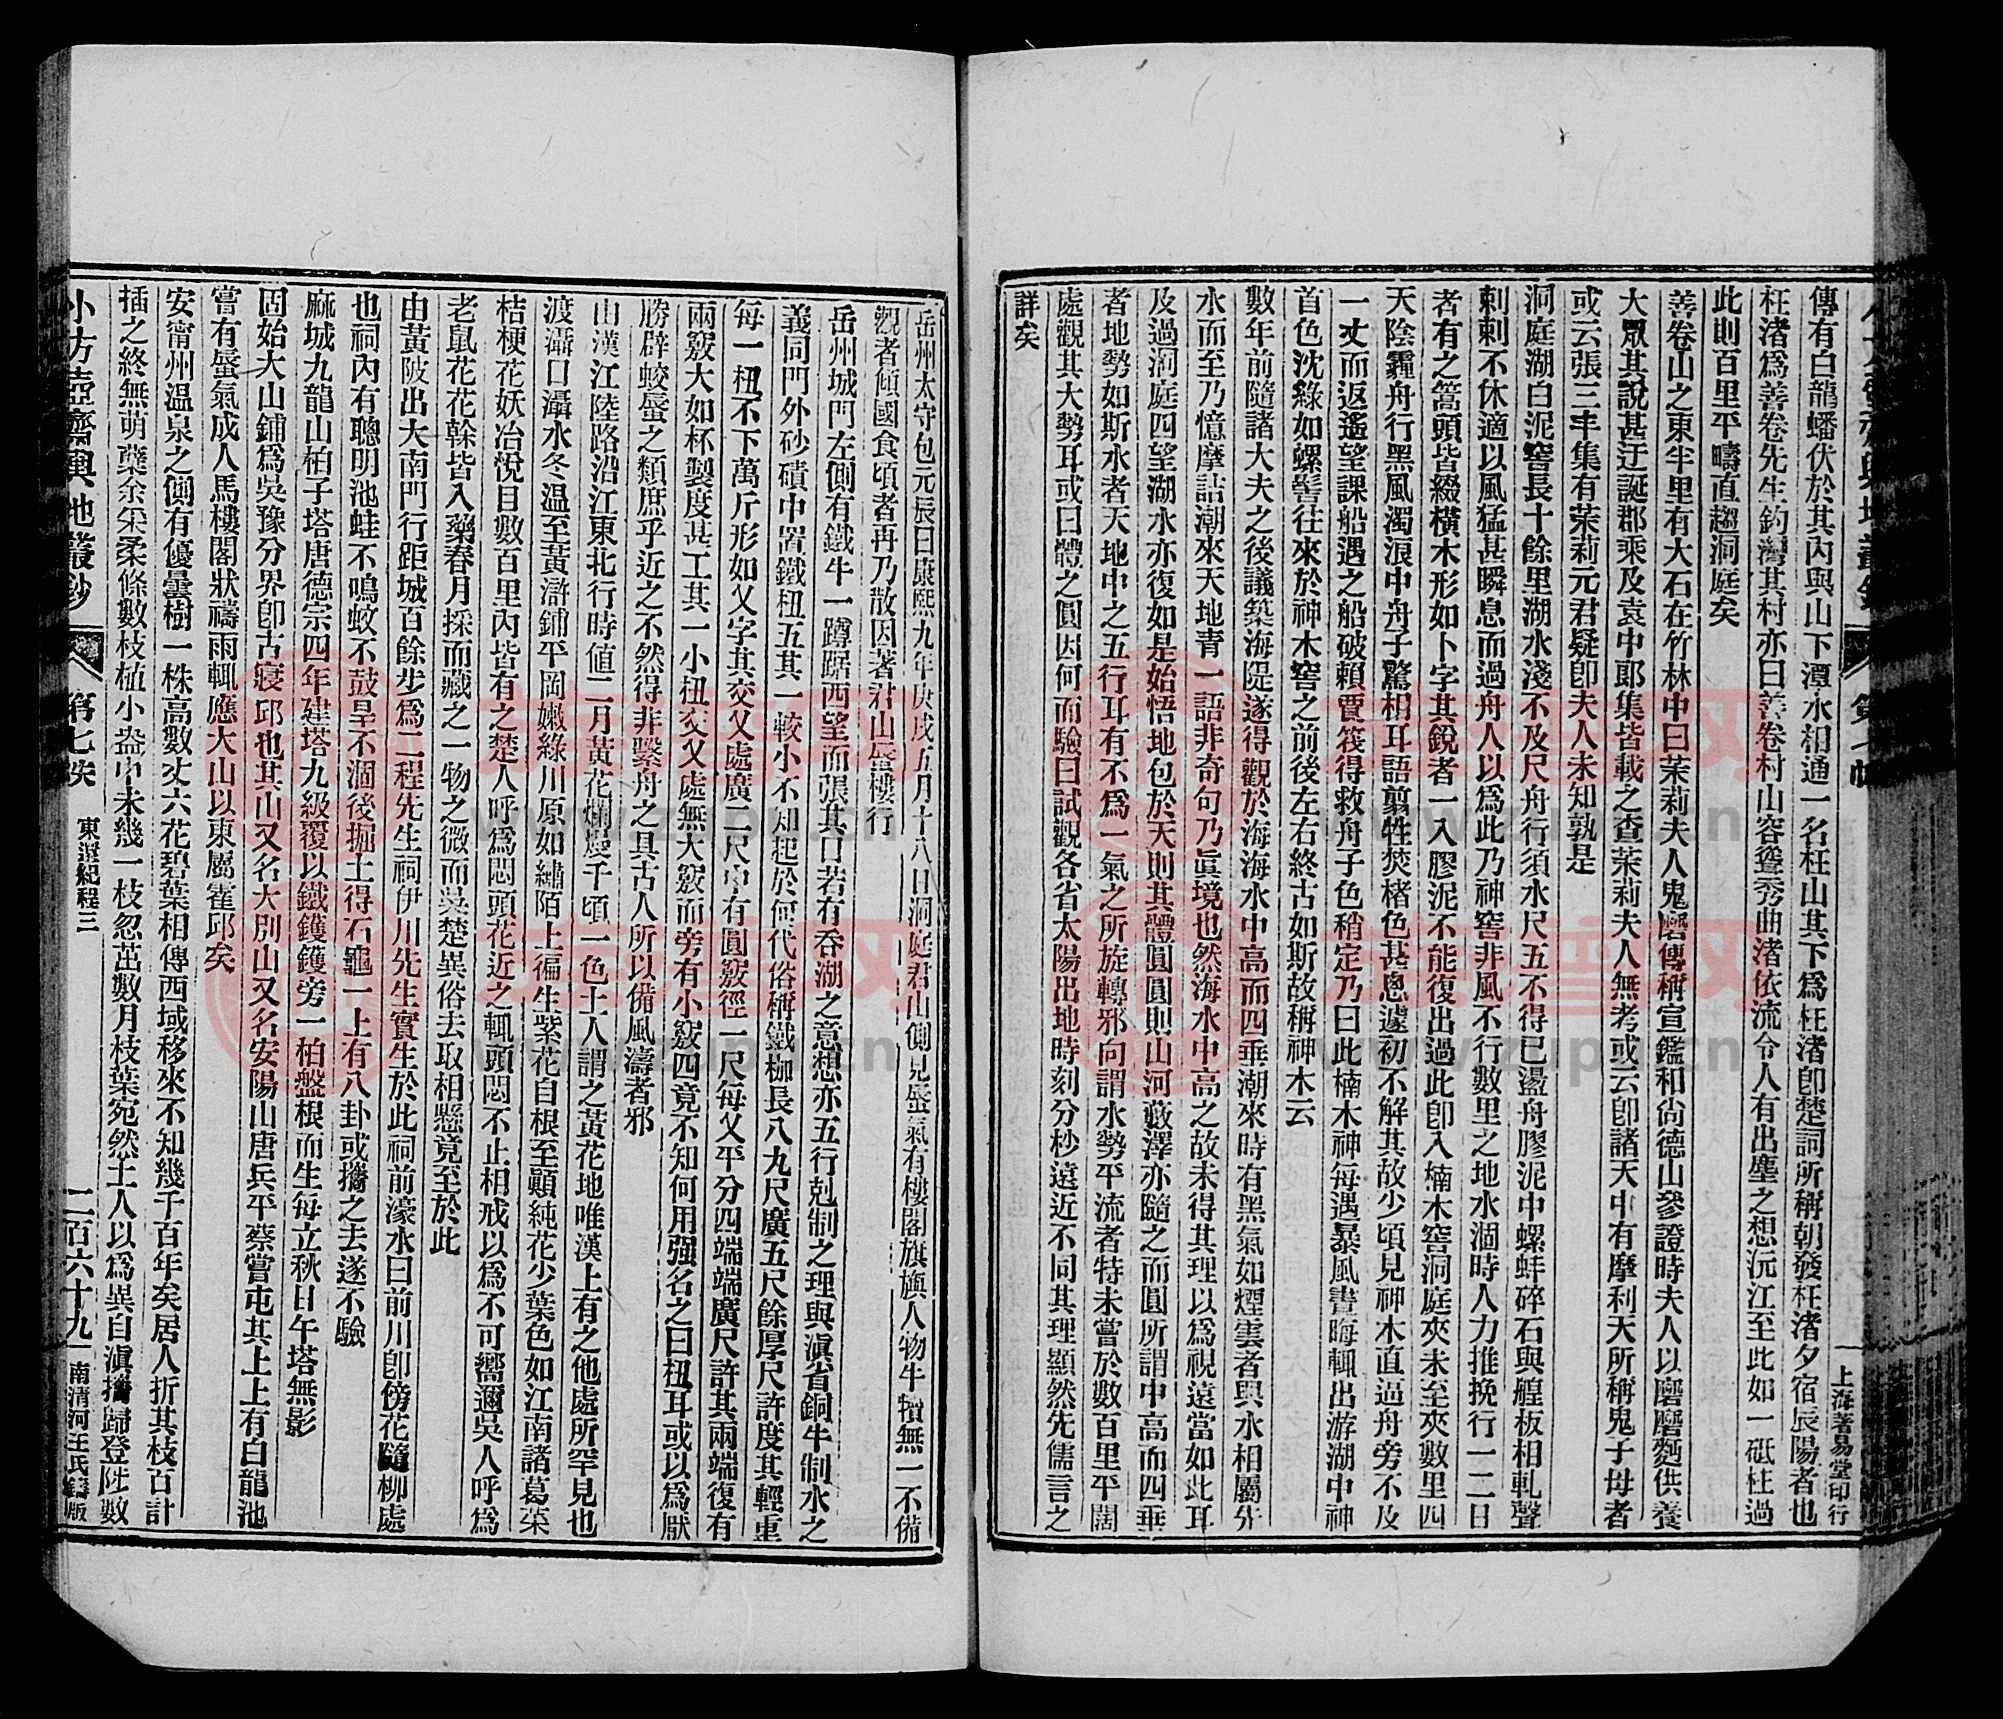 傳有白龍蟠伏於其內與山下潭水相通一名枉山其下爲枉渚卽楚詞所稱朝發枉渚夕宿辰陽者也
枉渚爲善卷先生釣灣其村亦曰善卷村山容聳秀曲渚依流令人有出塵之想沅江至此如一砥柱過
此則百里平疇直趨洞庭矣
善卷山之東半里有大石在竹林中曰茉莉夫人鬼磨傳稱宣鑑和尙德山參證時夫人以磨磨麪供養
大眾其說甚迂誕郡乘及袁中郞集皆載之查茉莉夫人無考或云卽諸天中有摩利天所稱鬼子母者
或云張三丰集有茉莉元君疑卽夫人未知孰是
洞庭湖白泥窖長十餘里湖水淺不及尺舟行須水尺五不得已盪舟膠泥中螺蚌碎石與艎板相軋聲
剌剌不休適以風猛甚瞬息而過舟人以爲此乃神窖非風不行數里之地水涸時人力推挽行一二日
者有之篙頭皆綴橫木形如卜字其銳者一入膠泥不能復出過此卽入楠木窖洞庭夾未至夾數里四
天陰霾舟行黑風濁浪中舟子驚相耳語翦牲焚楮色甚悤遽初不解其故少頃見神木直逼舟旁不及
一丈而返遙望課船遇之船破賴賈筏得救舟子色稍定乃曰此楠木神每遇暴風晝晦輒出游湖中神
首色沈綠如螺髻往來於神木窖之前後左右終古如斯故稱神木云
數年前隨諸大夫之後議築海隄遂得觀於海海水中高而四垂潮來時有黑氣如煙雲者與水相屬分
水而至乃憶摩詰潮來天地青一語非奇句乃眞境也然海水中高之故未得其理以爲視遠當如此耳
及過洞庭四望湖水亦復如是始悟地包於天則其體圓圓則山河藪澤亦隨之而圓所謂中高而四垂
者地勢如斯水者天地中之五行耳有不爲一氣之所旋轉邪向謂水勢平流者特未嘗於數百里平闊
處觀其大勢耳或曰體之圓因何而驗曰試觀各省太陽出地時刻分杪遠近不同其理顯然先儒言之
詳矣
上海著易堂印行
岳州太守包元辰曰康熙九年庚戌五月十八日洞庭君山側見蜃氣有樓閣旗旟人物牛犢無一不備
觀者傾國食頃者再乃散因著君山蜃樓行
岳州城門左側有鐵牛一蹲踞西望而張其口若有吞湖之意想亦五行剋制之理與滇省銅牛制水之
義同門外砂磧中置鐵杻五其一較小不知起於何代俗稱鐵枷長八九尺廣五尺餘厚尺許度其輕重
每一杻不下萬斤形如乂字其交乂處廣二尺中有圓竅徑一尺每乂平分四端端廣尺許其兩端復有
兩竅大如杯製度甚工其一小杻交乂處無大竅而旁有小竅四竟不知何用强名之曰杻耳或以爲厭
勝辟蛟蜃之類庶乎近之不然得非繫舟之具古人所以備風濤者邪
山漢江陸路沿江東北行時値二月黃花爛熳千頃一色土人謂之黃花地唯漢上有之他處所罕見也
渡灄口灄水冬溫至黃滸鋪平岡嫩綠川原如繡陌上徧生紫花自根至顚純花少葉色如江南諸葛菜
桔梗花妖冶悅目數百里內皆有之楚人呼爲悶頭花近之輒頭悶不止相戒以爲不可嚮邇吳人呼爲
老鼠花花榦皆入藥春月採而藏之一物之微而吳楚異俗去取相懸竟至於此
由黃陂出大南門行距城百餘步爲二程先生祠伊川先生實生於此祠前濠水曰前川卽傍花隨柳處
也祠內有聰明池蛙不鳴蚊不鼓旱不涸後掘土得石龜一上有八卦或攜之去遂不驗
麻城九龍山柏子塔唐德宗四年建塔九級覆以鐵鑊鑊旁一柏盤根而生每立秋日午塔無影
固始大山鋪爲吳豫分界卽古寢邱也其山又名大別山又名安陽山唐兵平蔡嘗屯其上上有白龍池
嘗有蜃氣成人馬樓閣狀禱雨輒應大山以東屬霍邱矣
安甯州溫泉之側有優曇樹一株高數丈六花碧葉相傳西域移來不知幾千百年矣居人折其枝百計
插之終無萌蘖余采柔條數枝植小盎中未幾一枝忽茁數月枝葉宛然土人以爲異自滇攜歸登陟數
小方壺齋輿地叢鈔
第七帙
東還紀程三
二百六十九
南清河王氏鑄版